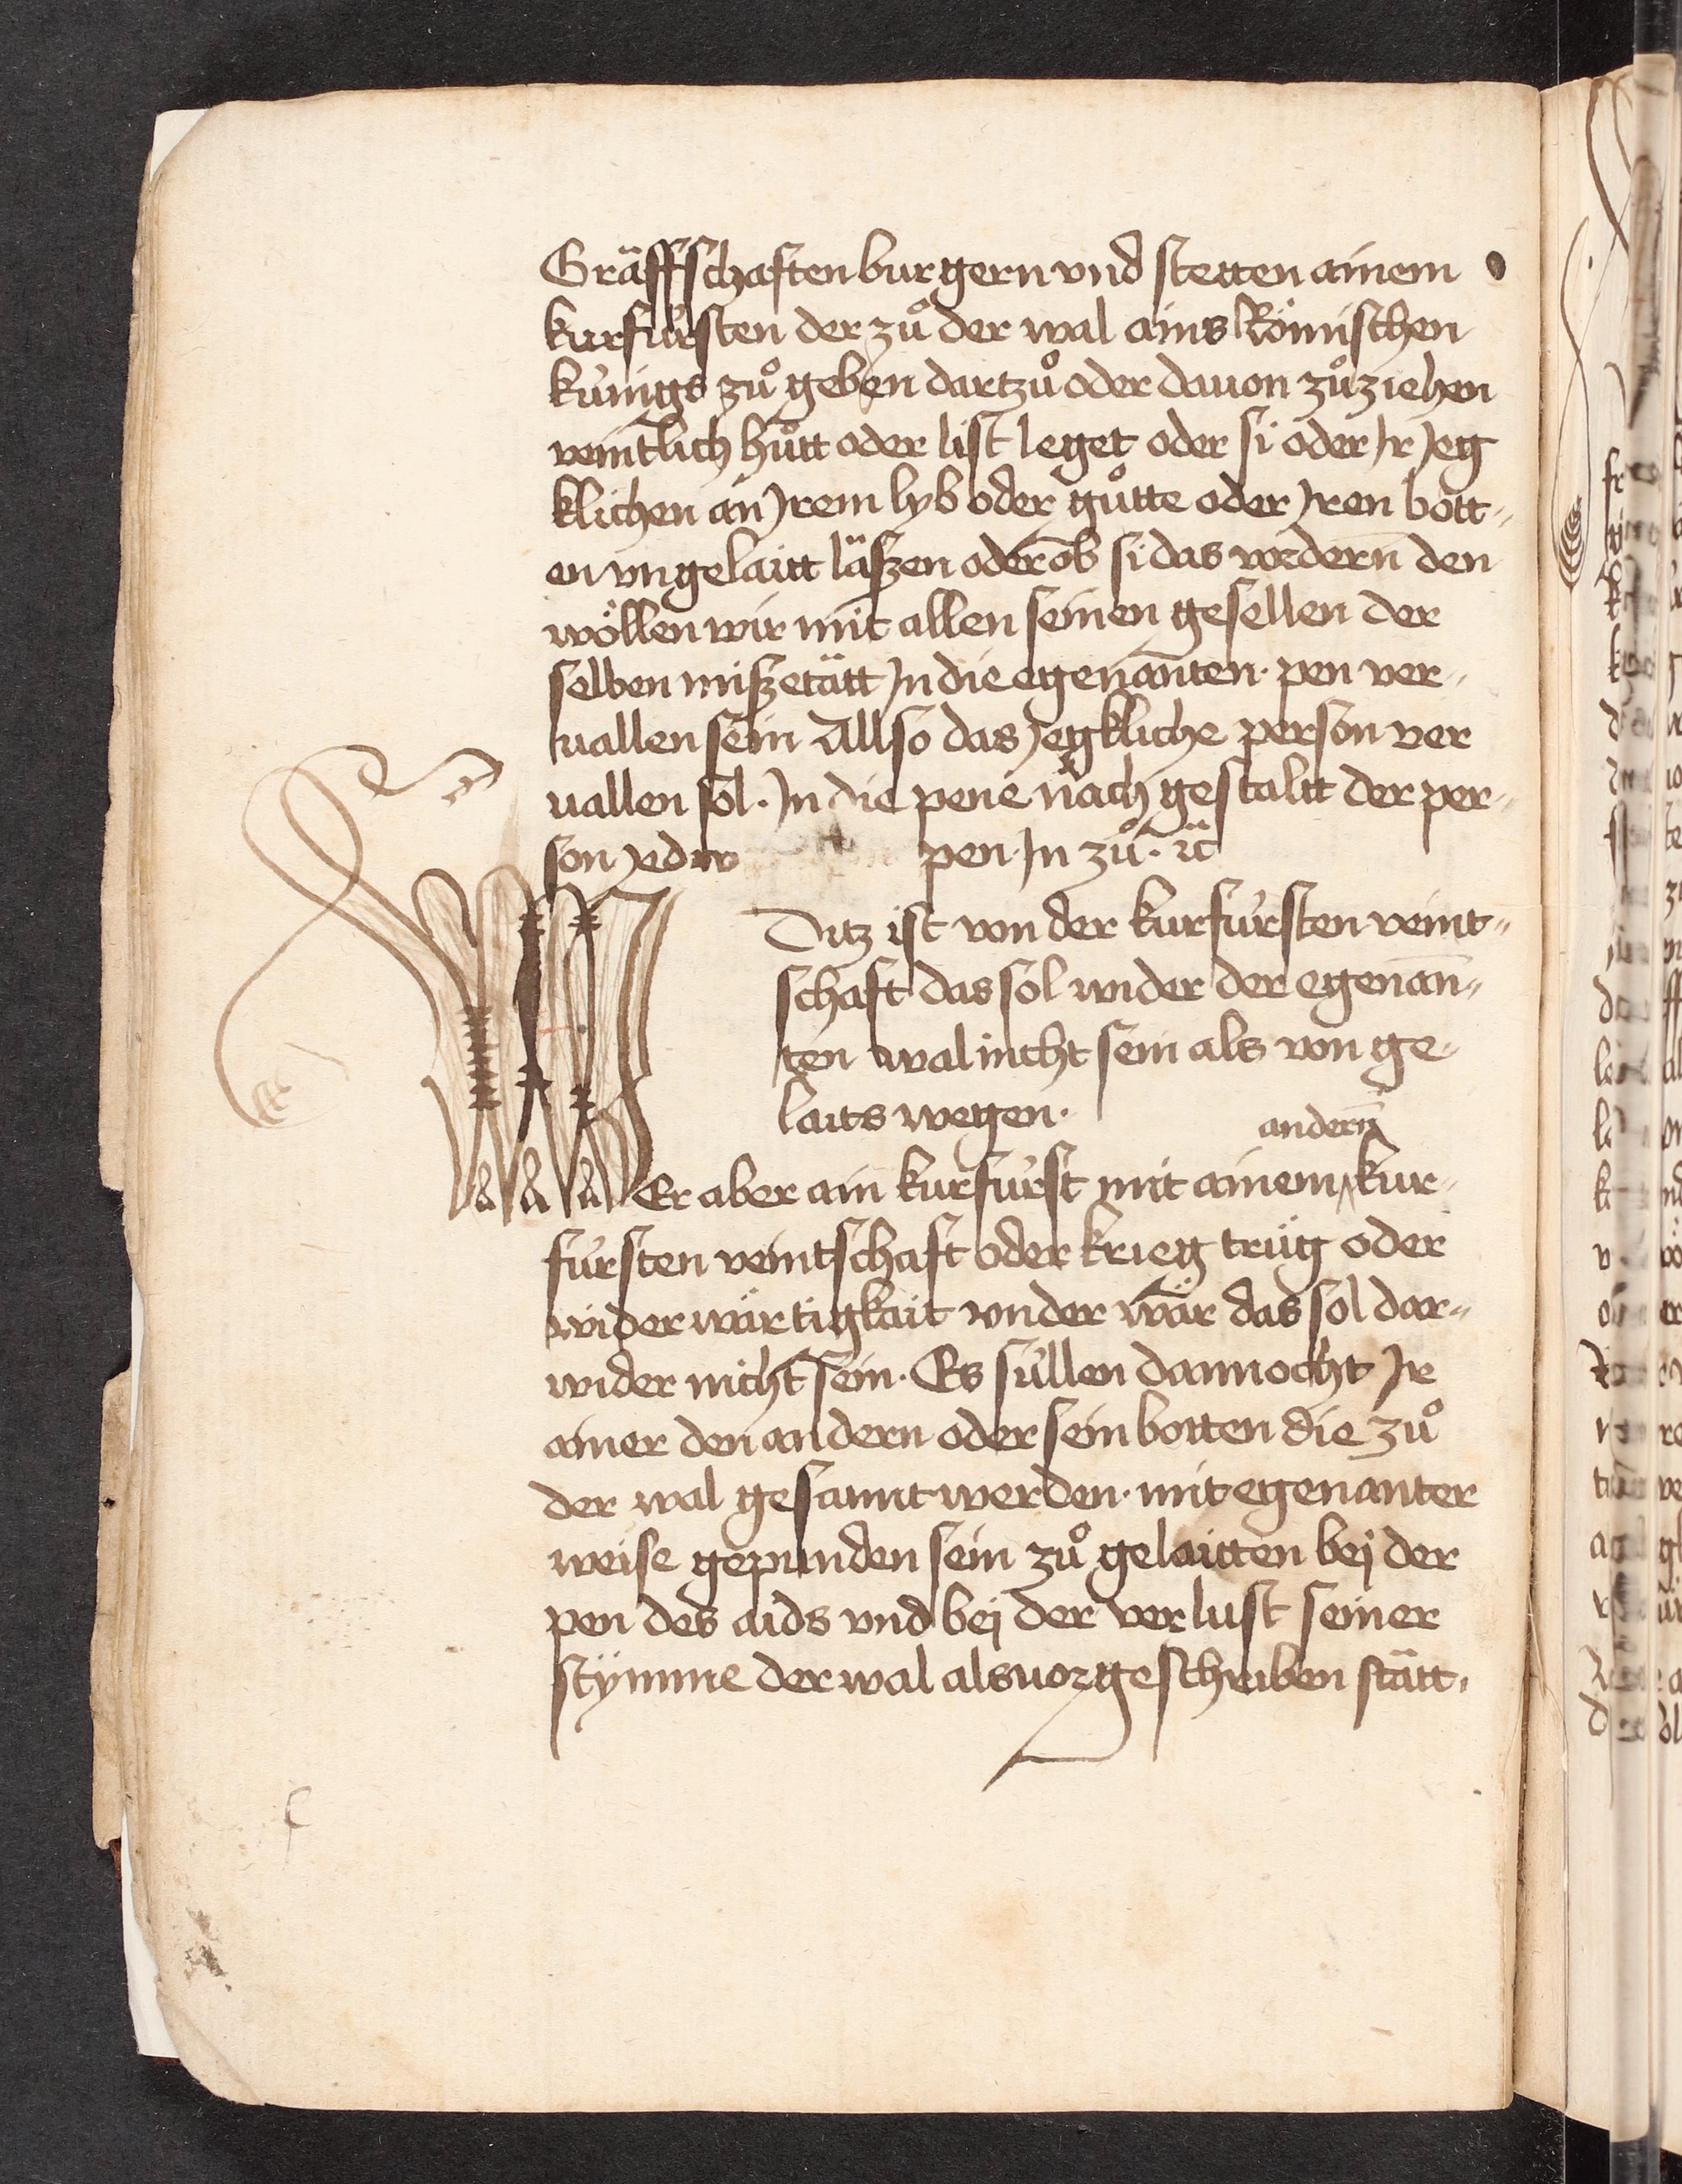 Gräffschaften burgern vnd stetten ainem
kurfürsten der zuͦ der wal ains Römischen
künigs zuͦ geben dartzuͦ oder dauon zuͦ ziehen
veintlich huͦtt oder list leget oder si oder Jr Jeg
klichen an Jrem lyb oder guͦtte oder Jren bott„
en vngelaitt läszen oder ob si das vordern̄ den
wöllen wir mit allen seinen gesellen der
selben miszetätt Jn die egenan̄ten · pen ver„
uallen sein Allso das Jegkliche person ver
uallen sol · Jn die pene nach gestaltt der per„
son pen · Jn zuͦ · ꝛc̈
Ditz ist von der kurfürsten veint„
schaft das sol wider der egenan̄„
ten wal nicht sein als von ge„
laits wegen ·
andern̄
WEr aber ain kurfürst mit ainem kur„
fürsten veintschaft oder krieg trüg oder
widerwärtigkait vnder wär das sol dar„
wider nicht sein · Es süllen dannocht Jr
ainer den andern oder sein botten die zuͦ
der wal gesannt werden · mit egenanter
weise gepunden sein zuͦ gelaitten bej der
pen des aids vnd bej der verlust seiner
stÿmme der wal als vorgeschriben stätt ·